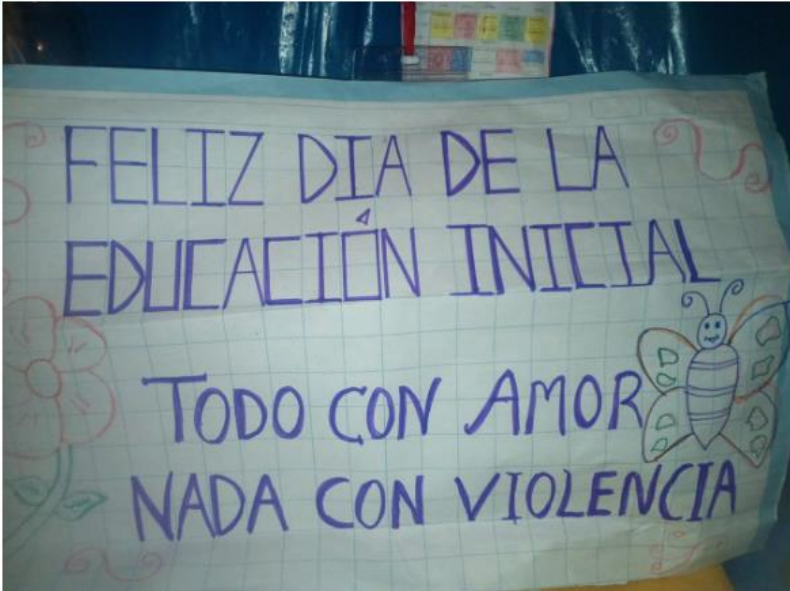 FELIZ DIA DE LA
EDUCACIÓN INICIAL
TODO CON AMOR
NADA CON VIOLENCIA